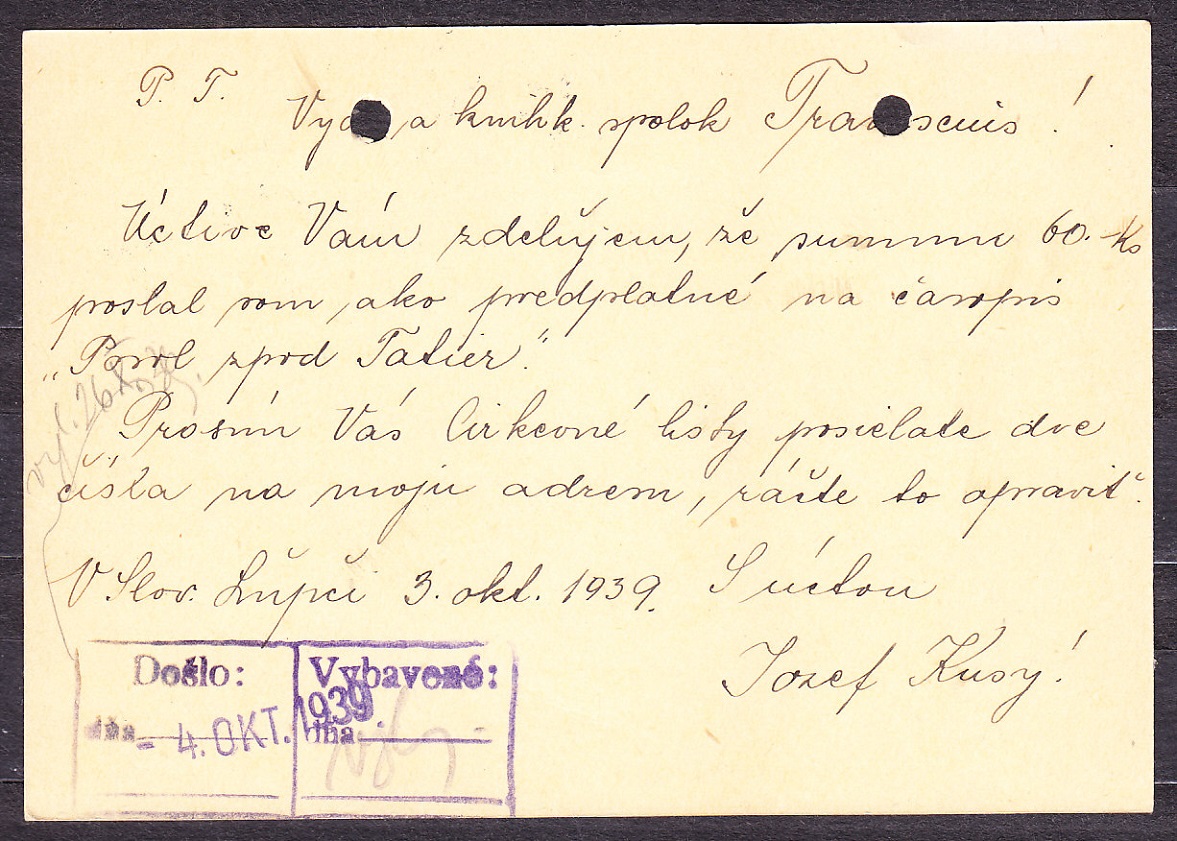 P. T.
Vyd a knihk. spolok Tranoscius!
Úctive Vám zdelujem, že summu 60.- Ks
poslal som, ako predplatné na časopis
„Pôvol zpod Tatier."
Prosím Vás Cirkevné listy posielate dve
čísla na moju adresu, ráčte to opraviť.
V Slov. Lupči 3. okt. 1939. S úctou
Jozef Kusý!
Došlo: Vybavené:
dňa - 4. OKT. 1939 dňa